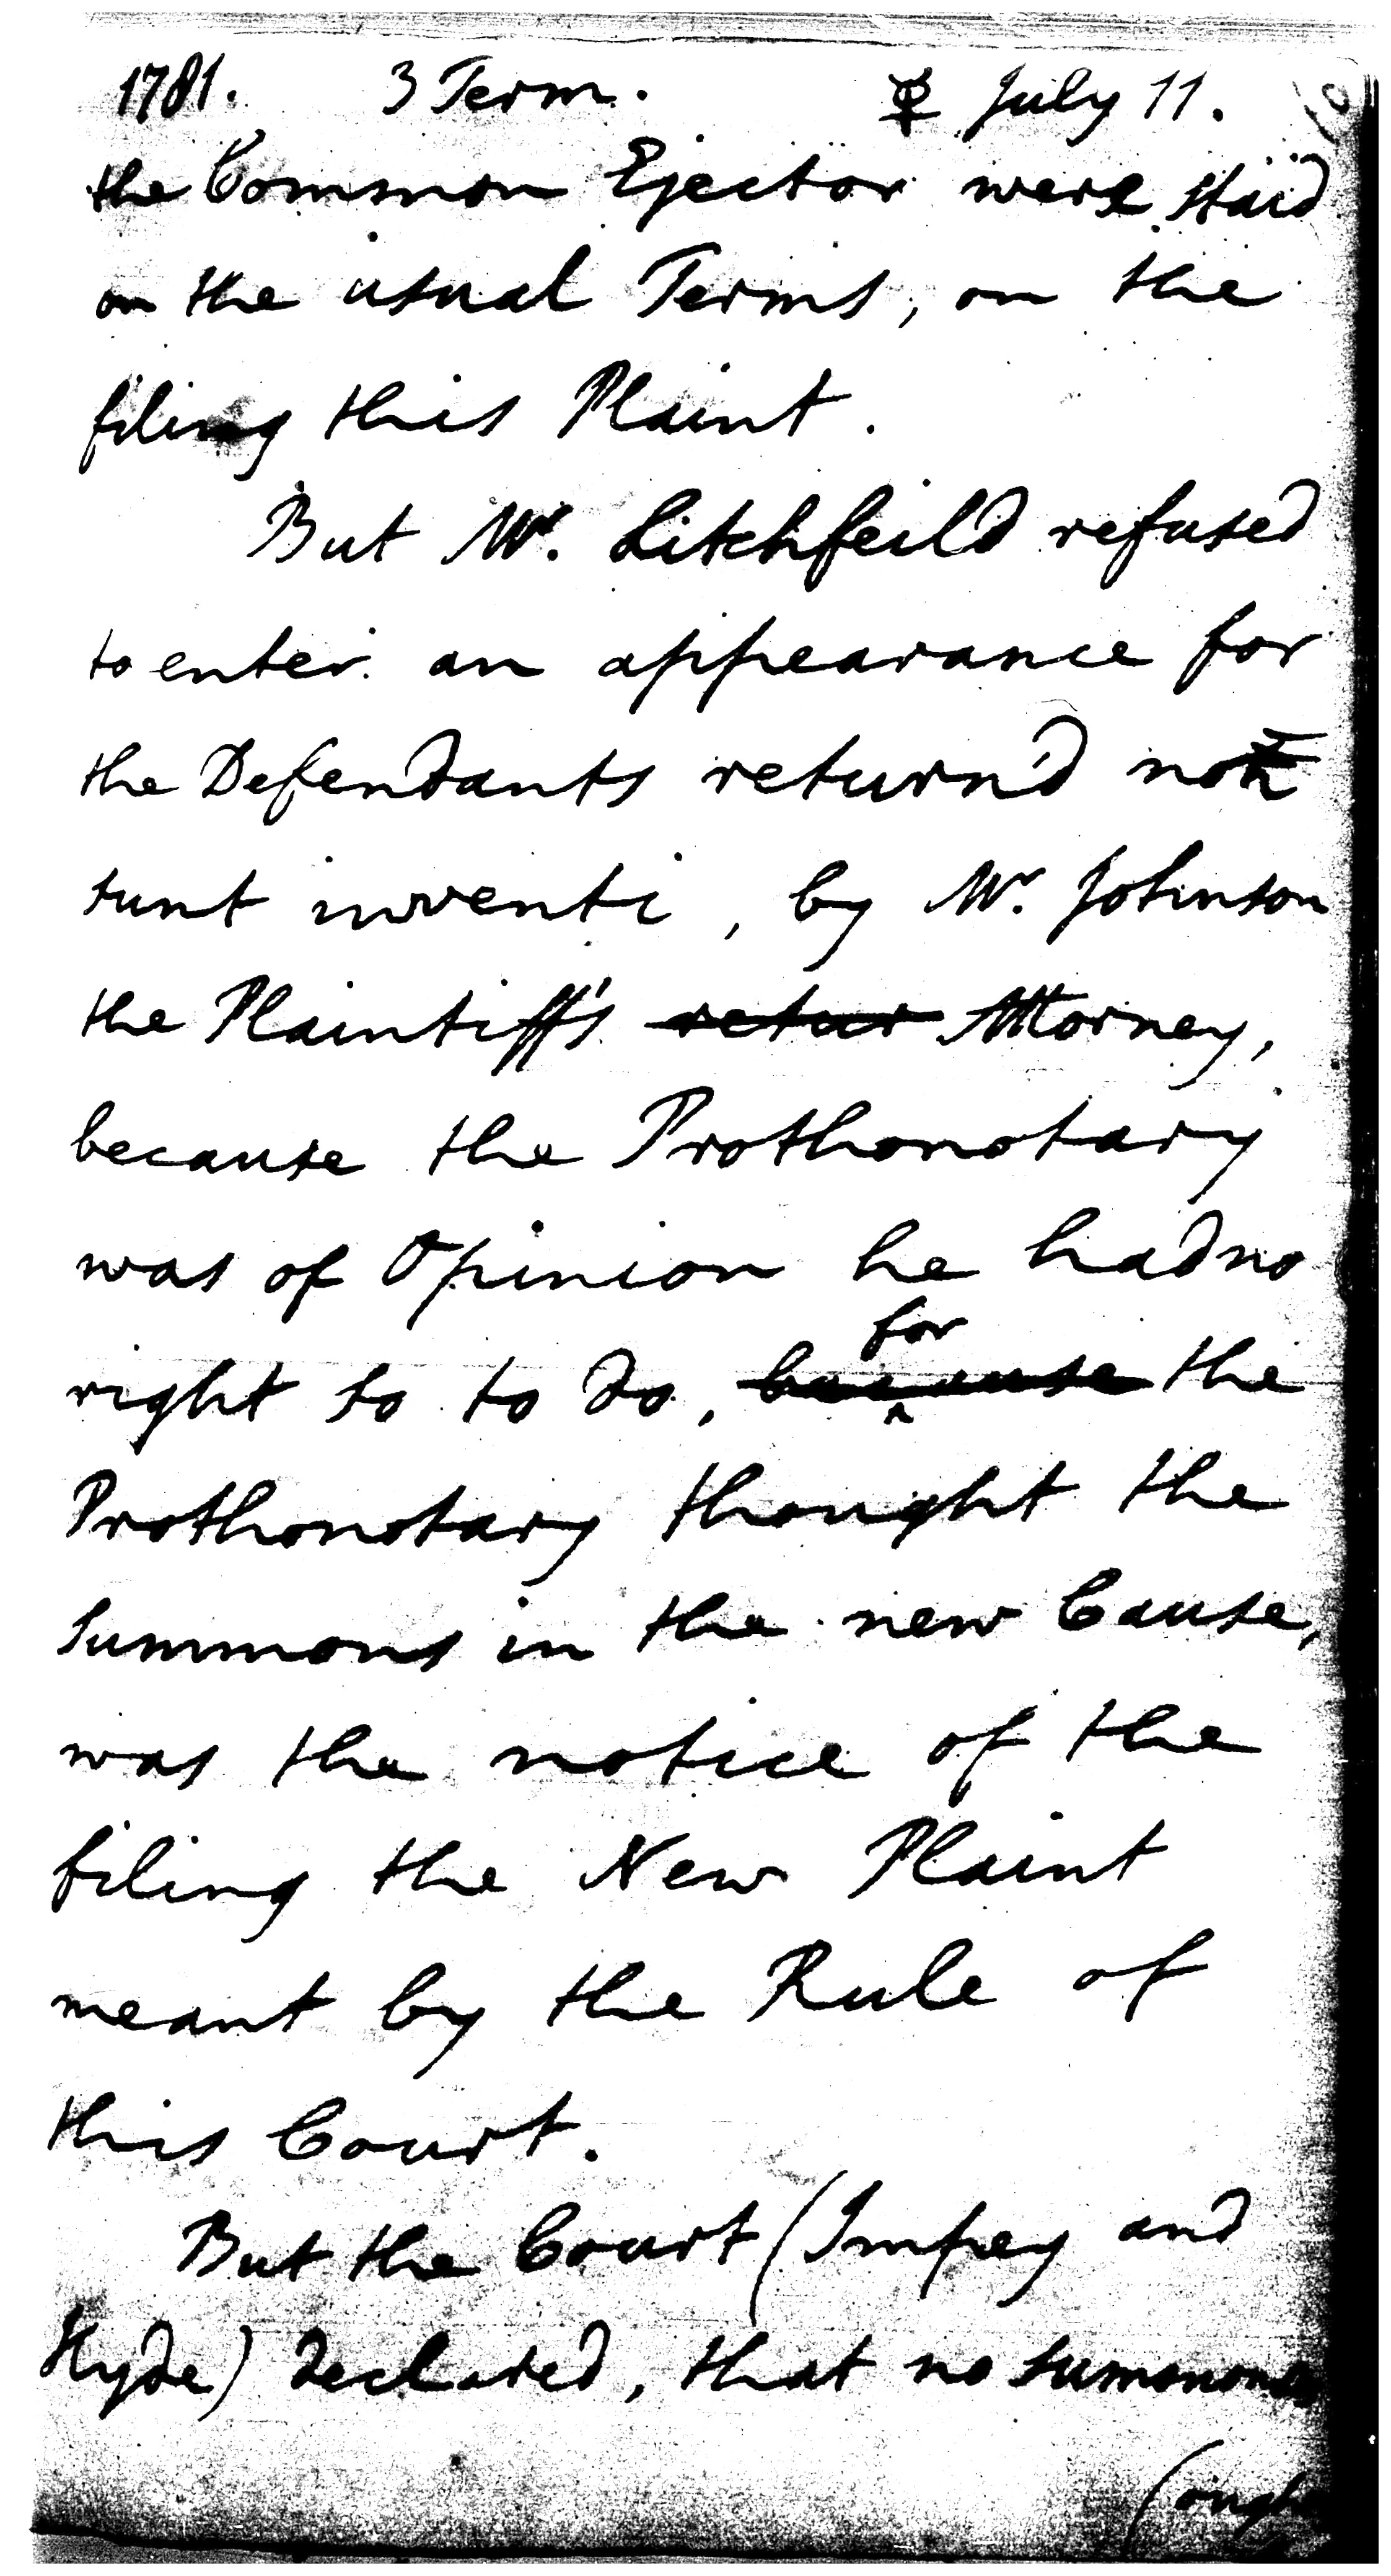 1781. 3 Term. ☿ July 11.
the Common Ejector were staid
on the usual Terms, on the
filing this Plaint.
But Mr. Litchfeild refused
to enter an appearance for
the Defendants return'd non
sunt inventi, by Mr. Johnson
the Plaintiff's retur Attorney,
because the Prothonotary
was of Opinion he had no
for
right so to do, because the
Prothonotary thought the
Summons in the new Cause,
was the notice of the
filing the New Plaint
meant by the Rule of
this Court.
But the Court (Impey and
Hyde) declared, that no summons
(ough